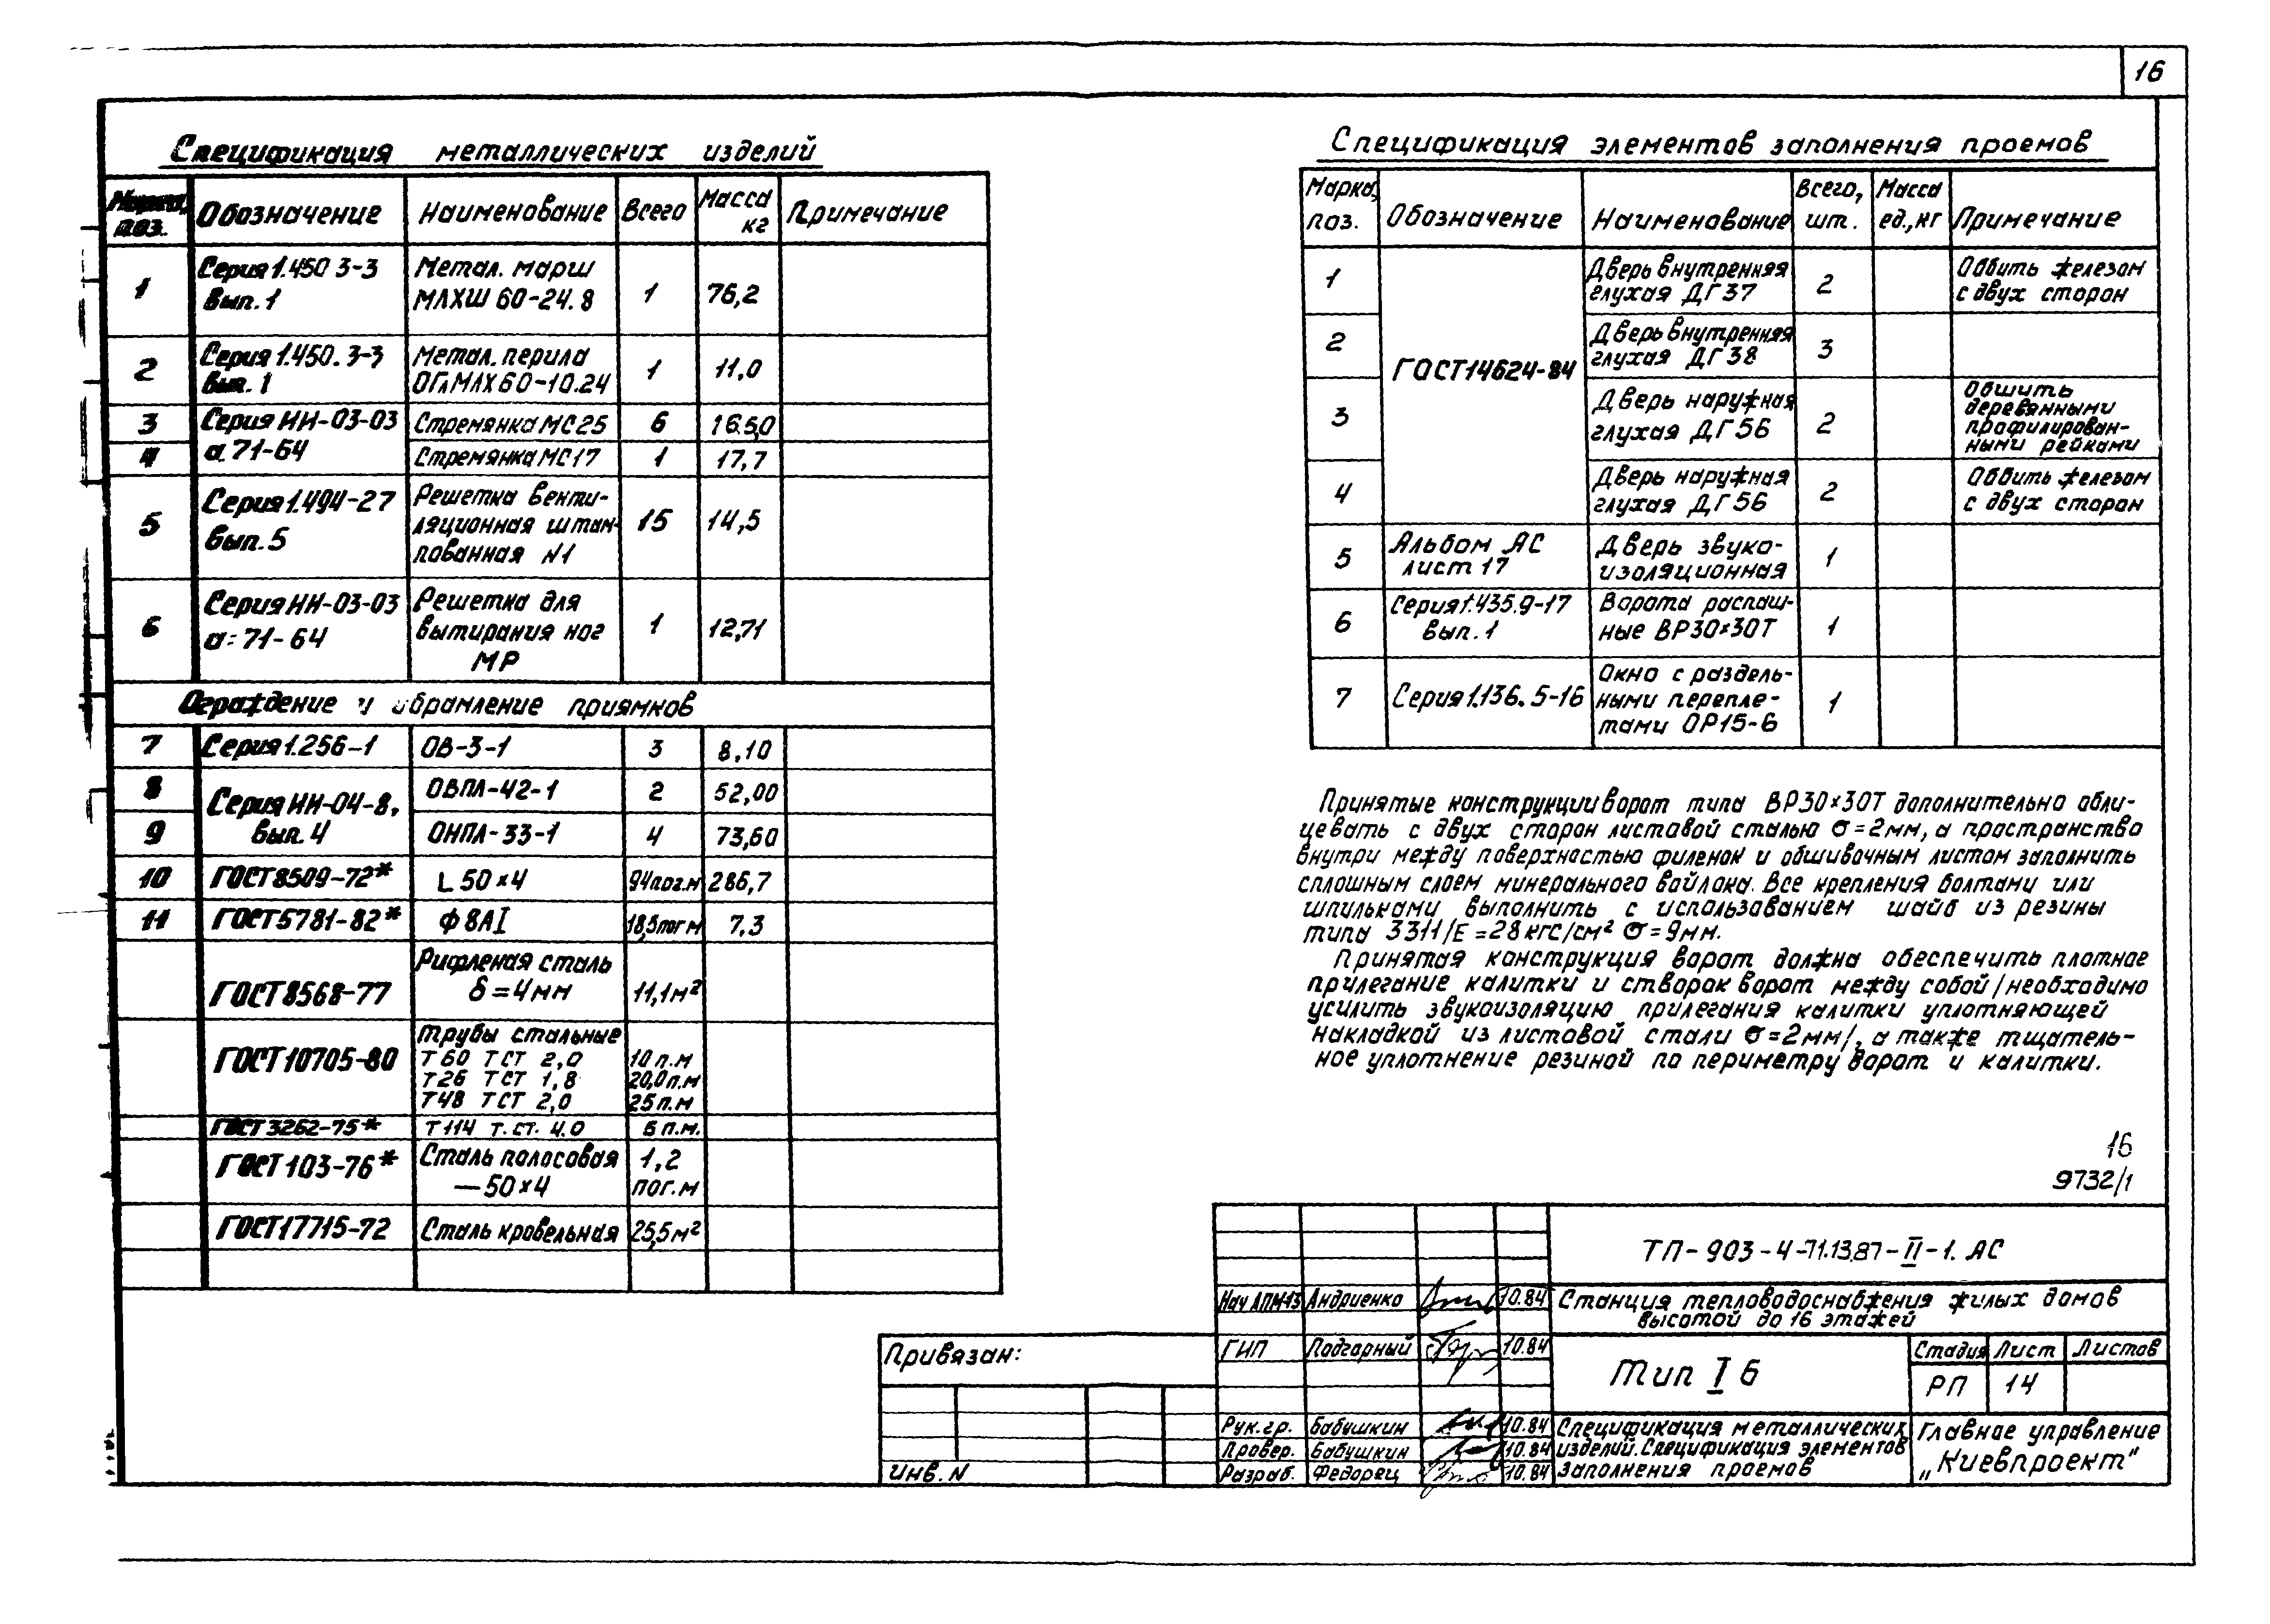 16
Спецификация металлических изделий
Марка, поз. Обозначение Наименование Всего Масса кг Примечание
1 Серия 1.450 3-3 Метал. марш
вып. 1 МЛХШ 60-24.8 1 76,2
2 Серия 1.450. 3-3 Метал. перила
вып. 1 ОГлМЛХ60-10.24 1 11,0
3 Серия ИИ-03-03 Стремянка МС25 6 165,0
4 а. 71-64 Стремянка МС17 1 17,7
5 Серия 1.494-27 Решетка венти-
вып. 5 ляционная штам- 15 14,5
пованная N1
6 Серия ИИ-03-03 Решетка для
а: 71-64 вытирания ног 1 12,71
МР
Ограждение и обрамление приямков
7 Серия 1.256-1 ОВ-3-1 3 8,10
8 Серия ИИ-04-8, ОВПЛ-42-1 2 52,00
9 вып. 4 ОНПЛ-33-1 4 73,60
10 ГОСТ 8509-72* L 50×4 94пог.м 286,7
11 ГОСТ 5781-82* Ф 8АI 18,5пог м 7,3
Рифленая сталь
ГОСТ 8568-77 δ=4мм 11,1м²
Трубы стальные
ГОСТ 10705-80 Т 60 Т СТ 2,0 10 п.м
Т26 Т СТ 1,8 20,0п.м
Т48 Т СТ 2,0 25 п.м
ГОСТ 3262-75* Т 114 т. ст. 4.0 6 п.м.
ГОСТ 103-76* Сталь полосовая 1,2
—50×4 пог.м
ГОСТ 17715-72 Сталь кровельная 25,5м²
Спецификация элементов заполнения проемов
Марка, поз. Обозначение Наименование Всего, шт. Масса ед.,кг Примечание
1 Дверь внутренняя Оббить железом
глухая ДГ37 2 с двух сторон
2 Дверь внутренняя
глухая ДГ38 3
ГОСТ 14624-84
3 Дверь наружная Обшить
глухая ДГ56 2 деревянными
профилирован-
ными рейками
4 Дверь наружная Оббить железом
глухая ДГ56 2 с двух сторон
5 Альбом АС Дверь звуко-
лист 17 изоляционная 1
6 Серия 1.435.9-17 Ворота распаш-
вып. 1 ные ВР30×30Т 1
Окно с раздель-
7 Серия 1.136.5-16 ными перепле- 1
тами ОР15-6
Принятые конструкции ворот типа ВР30×30Т дополнительно обли-
цевать с двух сторон листовой сталью σ=2мм, а пространство
внутри между поверхностью филенок и обшивочным листом заполнить
сплошным слоем минерального войлока. Все крепления болтами или
шпильками выполнить с использованием шайб из резины
типа 3311/Е=28кгс/см² σ=9мм.
Принятая конструкция ворот должна обеспечить плотное
прилегание калитки и створок ворот между собой/необходимо
усилить звукоизоляцию прилегания калитки уплотняющей
накладкой из листовой стали σ=2мм/, а также тщатель-
ное уплотнение резиной по периметру ворот и калитки.
16
9732/1
ТП-903-4-71.13.87-II-1. АС
Нач АПМ-13 Андриенко 10.84 Станция тепловодоснабжения жилых домов
высотой до 16 этажей
Привязан:
ГИП Подгарный 10.84 Тип I б Стадия Лист Листов
РП 14
Рук.гр. Бабушкин 10.84 Спецификация металлических Главное управление
Провер. Бабушкин 10.84 изделий. Спецификация элементов „Киевпроект"
Инв. N Разраб. Федорец 10.84 заполнения проемов